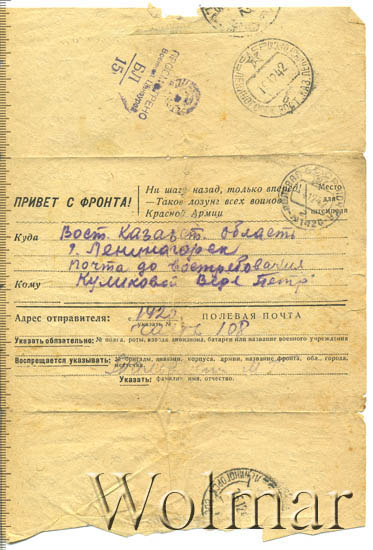 ПРОСМОТРЕНО
Военной Цензурой
БЛ
15
ПРИВЕТ С ФРОНТА!
Ни шагу назад, только вперед!
—Таков лозунг всех воинов
Красной Армии
Место
для
штемпеля
Куда Вост. Казахст. область
г. Лениногорск
почта до востребования
Кому Куликовой Вере Петр
Адрес отправителя: 1420 ПОЛЕВАЯ ПОЧТА
указать №
108
Указать обязательно: № полка, роты, взвода дивизиона, батареи или название военного учреждения
Воспрещается указывать: № бригады, дивизии, корпуса, армии, название фронта, обл., города,
местечка.
Указать: фамилию, имя, отчество.
Wolmar